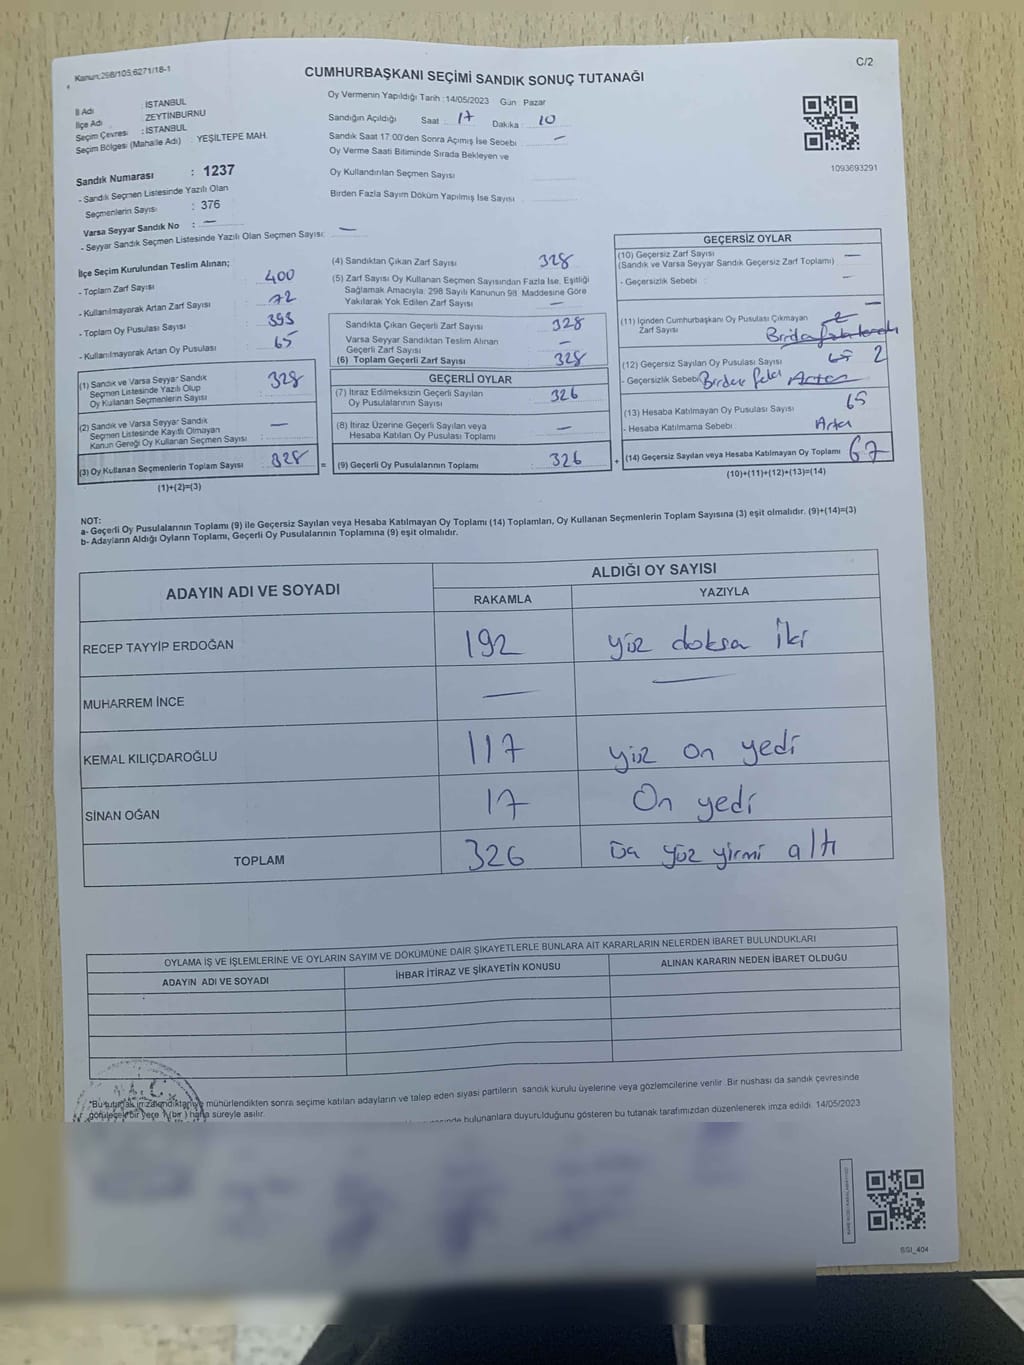 Kanun:298/105;6271/18-1
C/2
CUMHURBAŞKANI SEÇİMİ SANDIK SONUÇ TUTANAĞI
İl Adı : İSTANBUL
İlçe Adı : ZEYTİNBURNU
Seçim Çevresi : İSTANBUL
Seçim Bölgesi (Mahalle Adı) : YEŞİLTEPE MAH.
Sandık Numarası : 1237
- Sandık Seçmen Listesinde Yazılı Olan
Seçmenlerin Sayısı : 376
Varsa Seyyar Sandık No : —
- Seyyar Sandık Seçmen Listesinde Yazılı Olan Seçmen Sayısı: —
Oy Vermenin Yapıldığı Tarih : 14/05/2023 Gün : Pazar
Sandığın Açıldığı Saat : 17 Dakika : 10
Sandık Saat 17:00'den Sonra Açılmış İse Sebebi : —
Oy Verme Saati Bitiminde Sırada Bekleyen ve
Oy Kullandırılan Seçmen Sayısı
Birden Fazla Sayım Döküm Yapılmış İse Sayısı
1093693291
İlçe Seçim Kurulundan Teslim Alınan;
- Toplam Zarf Sayısı : 400
- Kullanılmayarak Artan Zarf Sayısı : 72
- Toplam Oy Pusulası Sayısı : 393
- Kullanılmayarak Artan Oy Pusulası : 65
(1) Sandık ve Varsa Seyyar Sandık
Seçmen Listesinde Yazılı Olup
Oy Kullanan Seçmenlerin Sayısı : 328
(2) Sandık ve Varsa Seyyar Sandık
Seçmen Listesinde Kayıtlı Olmayan
Kanun Gereği Oy Kullanan Seçmen Sayısı : —
(3) Oy Kullanan Seçmenlerin Toplam Sayısı : 328
(1)+(2)=(3)
(4) Sandıktan Çıkan Zarf Sayısı : 328
(5) Zarf Sayısı Oy Kullanan Seçmen Sayısından Fazla İse, Eşitliği
Sağlamak Amacıyla, 298 Sayılı Kanunun 98. Maddesine Göre
Yakılarak Yok Edilen Zarf Sayısı : —
Sandıkta Çıkan Geçerli Zarf Sayısı : 328
Varsa Seyyar Sandıktan Teslim Alınan
Geçerli Zarf Sayısı : —
(6) Toplam Geçerli Zarf Sayısı : 328
GEÇERLİ OYLAR
(7) İtiraz Edilmeksizin Geçerli Sayılan
Oy Pusulalarının Sayısı : 326
(8) İtiraz Üzerine Geçerli Sayılan veya
Hesaba Katılan Oy Pusulası Toplamı : —
= (9) Geçerli Oy Pusulalarının Toplamı : 326
GEÇERSİZ OYLAR
(10) Geçersiz Zarf Sayısı
(Sandık ve Varsa Seyyar Sandık Geçersiz Zarf Toplamı) : —
- Geçersizlik Sebebi : —
(11) İçinden Cumhurbaşkanı Oy Pusulası Çıkmayan
Zarf Sayısı
(12) Geçersiz Sayılan Oy Pusulası Sayısı : 65 2
- Geçersizlik Sebebi Birden fazla Artan
(13) Hesaba Katılmayan Oy Pusulası Sayısı : 65
- Hesaba Katılmama Sebebi : Artan
+ (14) Geçersiz Sayılan veya Hesaba Katılmayan Oy Toplamı : 67
(10)+(11)+(12)+(13)=(14)
NOT:
a- Geçerli Oy Pusulalarının Toplamı (9) ile Geçersiz Sayılan veya Hesaba Katılmayan Oy Toplamı (14) Toplamları, Oy Kullanan Seçmenlerin Toplam Sayısına (3) eşit olmalıdır. (9)+(14)=(3)
b- Adayların Aldığı Oyların Toplamı, Geçerli Oy Pusulalarının Toplamına (9) eşit olmalıdır.
ADAYIN ADI VE SOYADI
ALDIĞI OY SAYISI
RAKAMLA YAZIYLA
RECEP TAYYİP ERDOĞAN 192 yüz doksa iki
MUHARREM İNCE — —
KEMAL KILIÇDAROĞLU 117 yüz on yedi
SİNAN OĞAN 17 On yedi
TOPLAM 326 Üa yüz yirmi altı
OYLAMA İŞ VE İŞLEMLERİNE VE OYLARIN SAYIM VE DÖKÜMÜNE DAİR ŞİKAYETLERLE BUNLARA AİT KARARLARIN NELERDEN İBARET BULUNDUKLARI
ADAYIN ADI VE SOYADI İHBAR İTİRAZ VE ŞİKAYETİN KONUSU ALINAN KARARIN NEDEN İBARET OLDUĞU
*Bu tutanak imzalandıktan ve mühürlendikten sonra seçime katılan adayların ve talep eden siyasi partilerin sandık kurulu üyelerine veya gözlemcilerine verilir. Bir nüshası da sandık çevresinde
görülecek bir yere 1 (bir) hafta süreyle asılır.
bulunanlara duyurulduğunu gösteren bu tutanak tarafımızdan düzenlenerek imza edildi. 14/05/2023
SSI_404